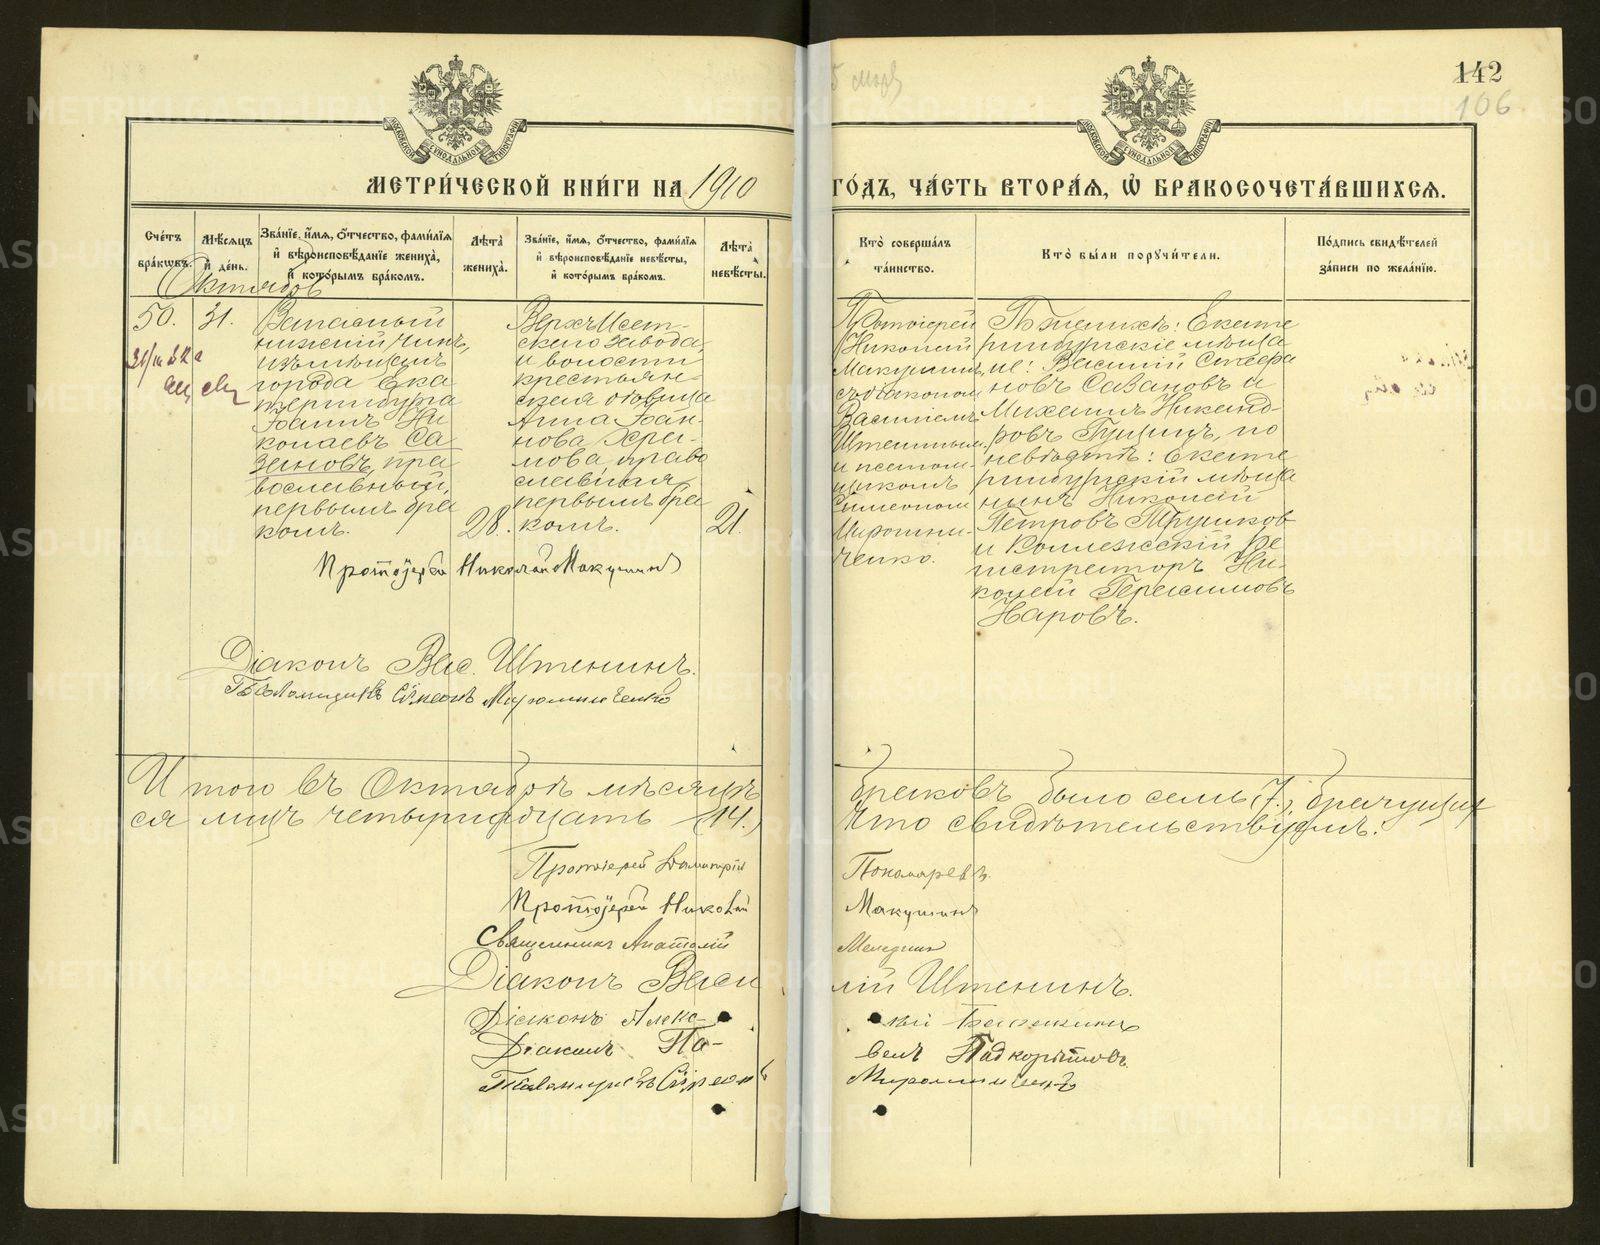 142
106
МЕТРИ́ЧЕСКОЙ КНИ́ГИ НА 1910 ГО́ДЪ, ЧА́СТЬ ВТОРА́Я, Ѡ҆ БРАКОСОЧЕТА́ВШИХСЯ.
Сче́тъ бра́кωвъ.
Мѣ́сяцъ и҆ де́нь.
Зва́нїе, и҆́мя, ѻ҆́тчество, фами́лїя и҆ вѣроисповѣ́данїе жениха̀, и҆ кото́рымъ бра́комъ.
Лѣ́та жениха̀.
Зва́нїе, и҆́мя, ѻ҆́тчество, фами́лїя и҆ вѣроисповѣ́данїе невѣ́сты, и҆ кото́рымъ бра́комъ.
Лѣ́та невѣ́сты.
Кто̀ соверша́лъ та́инство.
Кто̀ бы́ли поручи́тели.
По́дпись свидѣ́телей за́писи по жела́нїю.
Октябрь
50.
31.
Запасный
нижній чинъ,
изъ мѣщанъ
города Ека
теринбурга
Іоаннъ Ни
колаевъ Са
зановъ, пра
вославный,
первымъ бра
комъ.
28.
Верхъ-Исет-
скаго завода
и волости
крестьян-
ская дѣвица
Анна Іоан-
нова Хра-
мова, право
славная,
первымъ бра
комъ.
21.
Протоіерей
Николай
Макушинъ
съ діакономъ
Василіемъ
Штенинымъ
и псалом-
щикомъ
Симеономъ
Мирошни-
ченко.
По женихѣ: Екате
ринбургскіе мѣща
не: Василій Стефа
новъ Сазановъ и
Михаилъ Никанд-
ровъ Гущинъ, по
невѣстѣ: Екате
ринбургскій мѣща
нинъ Николай
Петровъ Трушков
и Коллежскій Ре
гистраторъ Ни-
колай Герасимовъ
Наровъ.
Протоіерей Николай Макушинъ
Діаконъ Вас. Штенинъ.
Псаломщикъ Сімеонъ Мирошниченко
Итого въ Октябрѣ мѣсяцѣ браковъ было семь (7), брачущих
ся лицъ четырнадцать (14.) Что свидѣтельствуемъ:
Протоіерей Димитрій Пономаревъ.
Протоіерей Николай Макушинъ
Священникъ Анатолій
Діаконъ Васи лій Штенинъ.
Діаконъ Алекс
Діаконъ Па- велъ Падкорытовъ.
Псаломщикъ Сімеонъ Мирошниченко